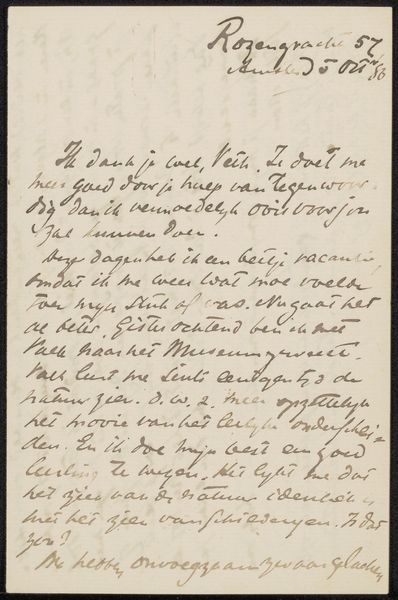 Rozengracht 57
Amsterd 5 Oct 86
Ik dank je wel, Veth. Je doet me
meer goed door je hulp van tegenwoor-
dig dan ik vermoedelijk ooit voor jou
zal kunnen doen.
Deze dagen heb ik een beetje vacantie,
omdat ik me weer wat moe voelde
toen mijn stuk af was. Nu gaat het
al beter. Gister ochtend ben ik met
Valk naar het Museum geweest.
Valk leert me sinds eenigen tijd de
natuur zien. d.w.z. meer opzettelijk
het mooie van het leelijke onderschei=
den. En ik doe mijn best een goed
leerling te wezen. Het lijkt me dat
het zien van de natuur identiek is
met het zien van schilderijen. Is dat
zoo?
We hebben